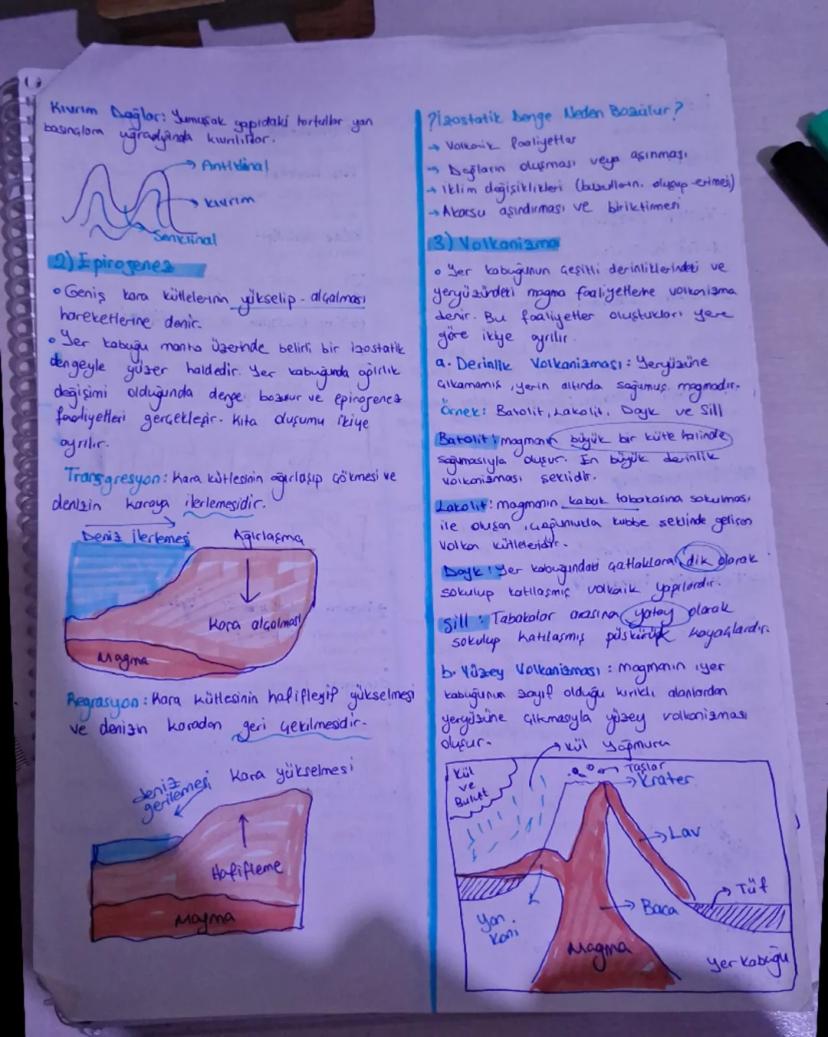 Kıvrım Dağlar: Yumuşak yapıdaki tortullar yan
basınçlara uğradığında kıvrılırlar.
Antiklinal
kıvrım
Senklinal
2) Epirogenez
• Geniş kara kütlelerinin yükselip-alçalması
hareketlerine denir.
• Yer kabuğu manto üzerinde belirli bir izostatik
dengeyle yüzer haldedir. Yer kabuğunda ağırlık
değişimi olduğunda denge bozulur ve epirogenez
faaliyetleri gerçekleşir. Kıta oluşumu ikiye
ayrılır.
Transgresyon: Kara kütlesinin ağırlaşıp çökmesi ve
denizin karaya ilerlemesidir.
Deniz ilerlemesi
Ağırlaşma
Kara alçalması
Magma
Regrasyon: Kara kütlesinin hafifleyip yükselmesi
ve denizin karadan geri çekilmesidir.
deniz
gerilemesi
Kara yükselmesi
Hafifleme
Magma
? İzostatik Denge Neden Bozulur?
→ Volkaik faaliyetler
→ Dağların oluşması veya aşınması
→ iklim değişiklikleri (buzulların. oluşup-erimesi)
→ Akarsu aşındırması ve biriktirmesi
3) Volkanizma
• Yer kabuğunun çeşitli derinliklerindeki ve
yeryüzündeki magma faaliyetlerine volkanizma
denir. Bu faaliyetler oluştukları yere
göre ikiye ayrılır.
a. Derinlik Volkanizması: Yeryüzüne
çıkamamış, yerin altında soğumuş magmadır.
Örnek: Batolit, Lakolit, Dayk ve Sill
Batolit: magmanın büyük bir kütle halinde
soğumasıyla oluşur. En büyük derinlik
volkanizması şeklidir.
Lakolit: magmanın kabuk tabakasına sokulması
ile oluşan, çoğunlukla kubbe şeklinde gelişen
volkan kütleleridir.
Dayk: Yer kabuğundaki çatlaklara dik olarak
sokulup katılaşmış volkaik yapılardır.
Sill: Tabakalar arasına yatay olarak
sokulup katılaşmış püskürük kayaçlardır.
b. Yüzey Volkanizması: magmanın, yer
kabuğunun zayıf olduğu kırıklı alanlardan
yeryüzüne çıkmasıyla yüzey volkanizması
oluşur.
Kül Yağmuru
Kül
ve
Bulut
Taşlar
Krater
Lav
Tüf
Yan
koni
Baca
Magma
Yer kabuğu